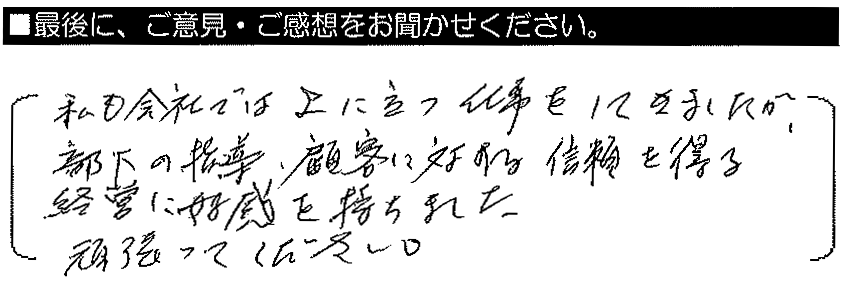 ■最後に、ご意見・ご感想をお聞かせください。
私も会社では上に立つ仕事をしてきましたが、
部下の指導、顧客に対する信頼を得る
経営に好感を持ちました。
頑張ってください。